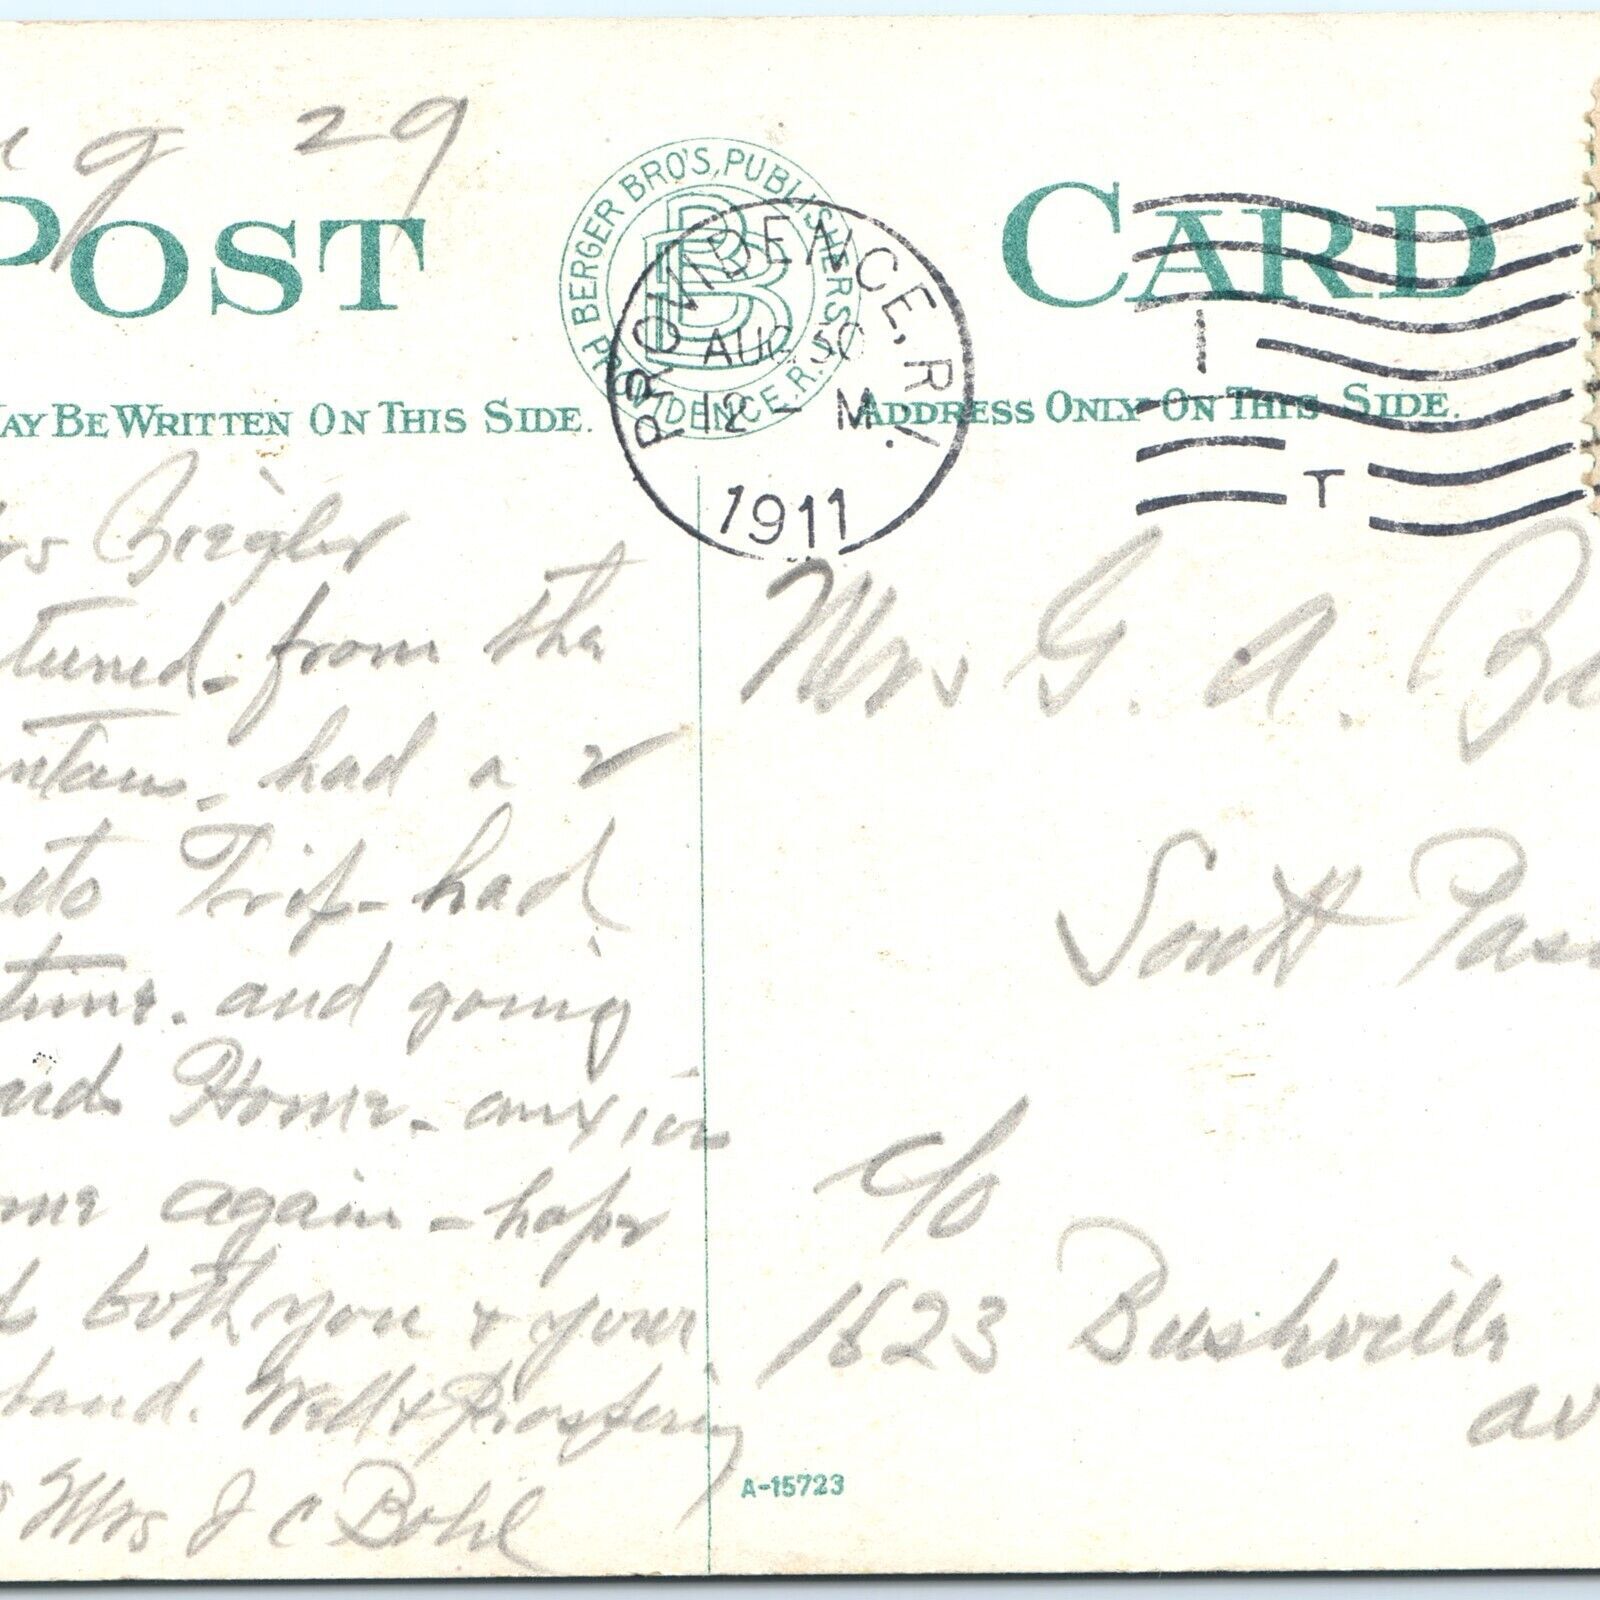 9 29
POST CARD
BERGER BRO'S, PUBLISHERS
PROVIDENCE, R.I.
BB
PROVIDENCE, R.I.
AUG 30
12 - M
1911
T
MAY BE WRITTEN ON THIS SIDE.
ADDRESS ONLY ON THIS SIDE.
rs Ziegler
turned from the
ntains, had a 2
auto Trip - had
time. and going
Home - anxious
ome again - hope
both you & your
band. Well & Prospering
Mrs J C Bohl
Mrs G. A.
South Pas
c/o
1623 Bushville
av
A-15723